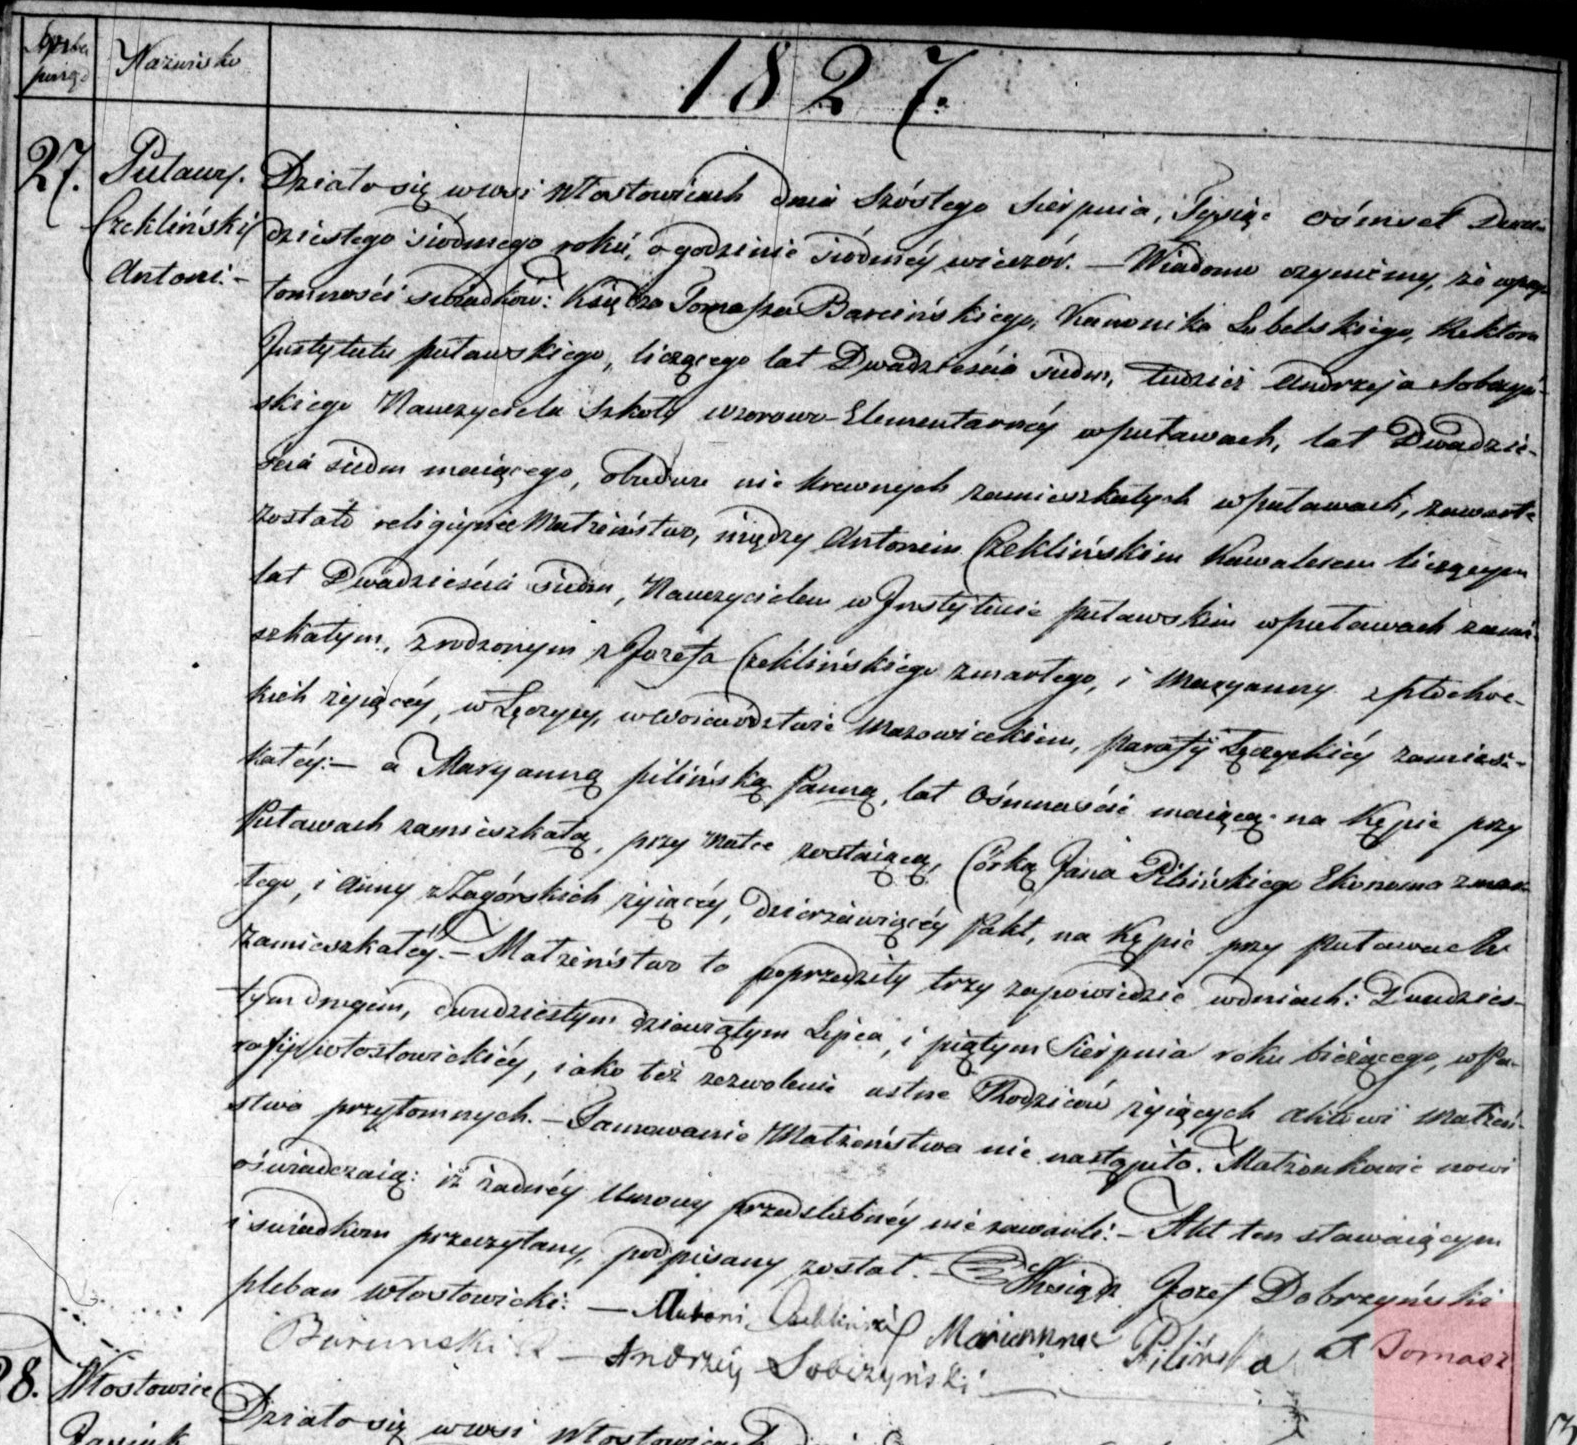 Nazwisko
1827.
27.
Puławy.
Czekliński
Antoni.-
Działo się w wsi Włostowicach dnia szóstego Sierpnia, Tysiąc ośmset Dwu-
dziestego siódmego roku, o godzinie siódméy wieczór. — Wiadomo czyniemy, że w przy-
tomności świadków: Księdza Tomasza Barcińskiego, Kanonika Lubelskiego, Rektora
Instytutu puławskiego, liczącego lat Dwadzieścia siedm, tudzież Andrzeja Sobczyń-
skiego Nauczyciela Szkoły wzorowo-Elementarnéy w puławach, lat Dwadzie-
ścia siedm maiącego, obudwu nie krewnych zamieszkałych w puławach, zawarte
zostało religijnie Małżeństwo, między Antonim Czeklińskim Kawalerem liczącym
lat Dwadzieścia siedm, Nauczycielem w Instytucie puławskim w puławach zamie-
szkałym, zrodzonym z Józefa Czeklińskiego zmarłego, i Maryanny z płochoc-
kich żyiącéy, w Łęczycy, w Woiewództwie Mazowieckiem, parafij Łęczyckiéy zamiesz-
kałéy:— a Maryanną pilińską Panną, lat Ośmnaście maiącą na Kępie przy
Puławach zamieszkałą, przy Matce zostaiącą, Córką Jana Pilińskiego Ekonoma zmar-
łego, i Anny z Zagórskich żyiącéy, dzierżawiącéy Pakt, na Kępie przy Puławach
zamieszkałéy.— Małżeństwo to poprzedziły trzy zapowiedzie w dniach: Dwudzies-
tym drugim, dwudziestym dziewiątym Lipca, i piątym Sierpnia roku bieżącego, w Pa-
rafij włostowickiéy, iako też zezwolenie ustne Rodziców żyiących aktowi Małżeń-
stwa przytomnych.— Tamowanie Małżeństwa nie nastąpiło. Małżonkowie nowi
oświadczaią: iż żadnéy Umowy przedślubnéy nie zawarli:— Akt ten stawaiącym
i świadkom przeczytany, podpisany został.— Ksiądz Józef Dobrzyński
pleban włostowicki: — Antoni Czekliński Marianna Pilińska X Tomasz
Barcinski — Andrzéy Sobczyński —
28.
Włostowice
Działo się w wsi Włostowicach